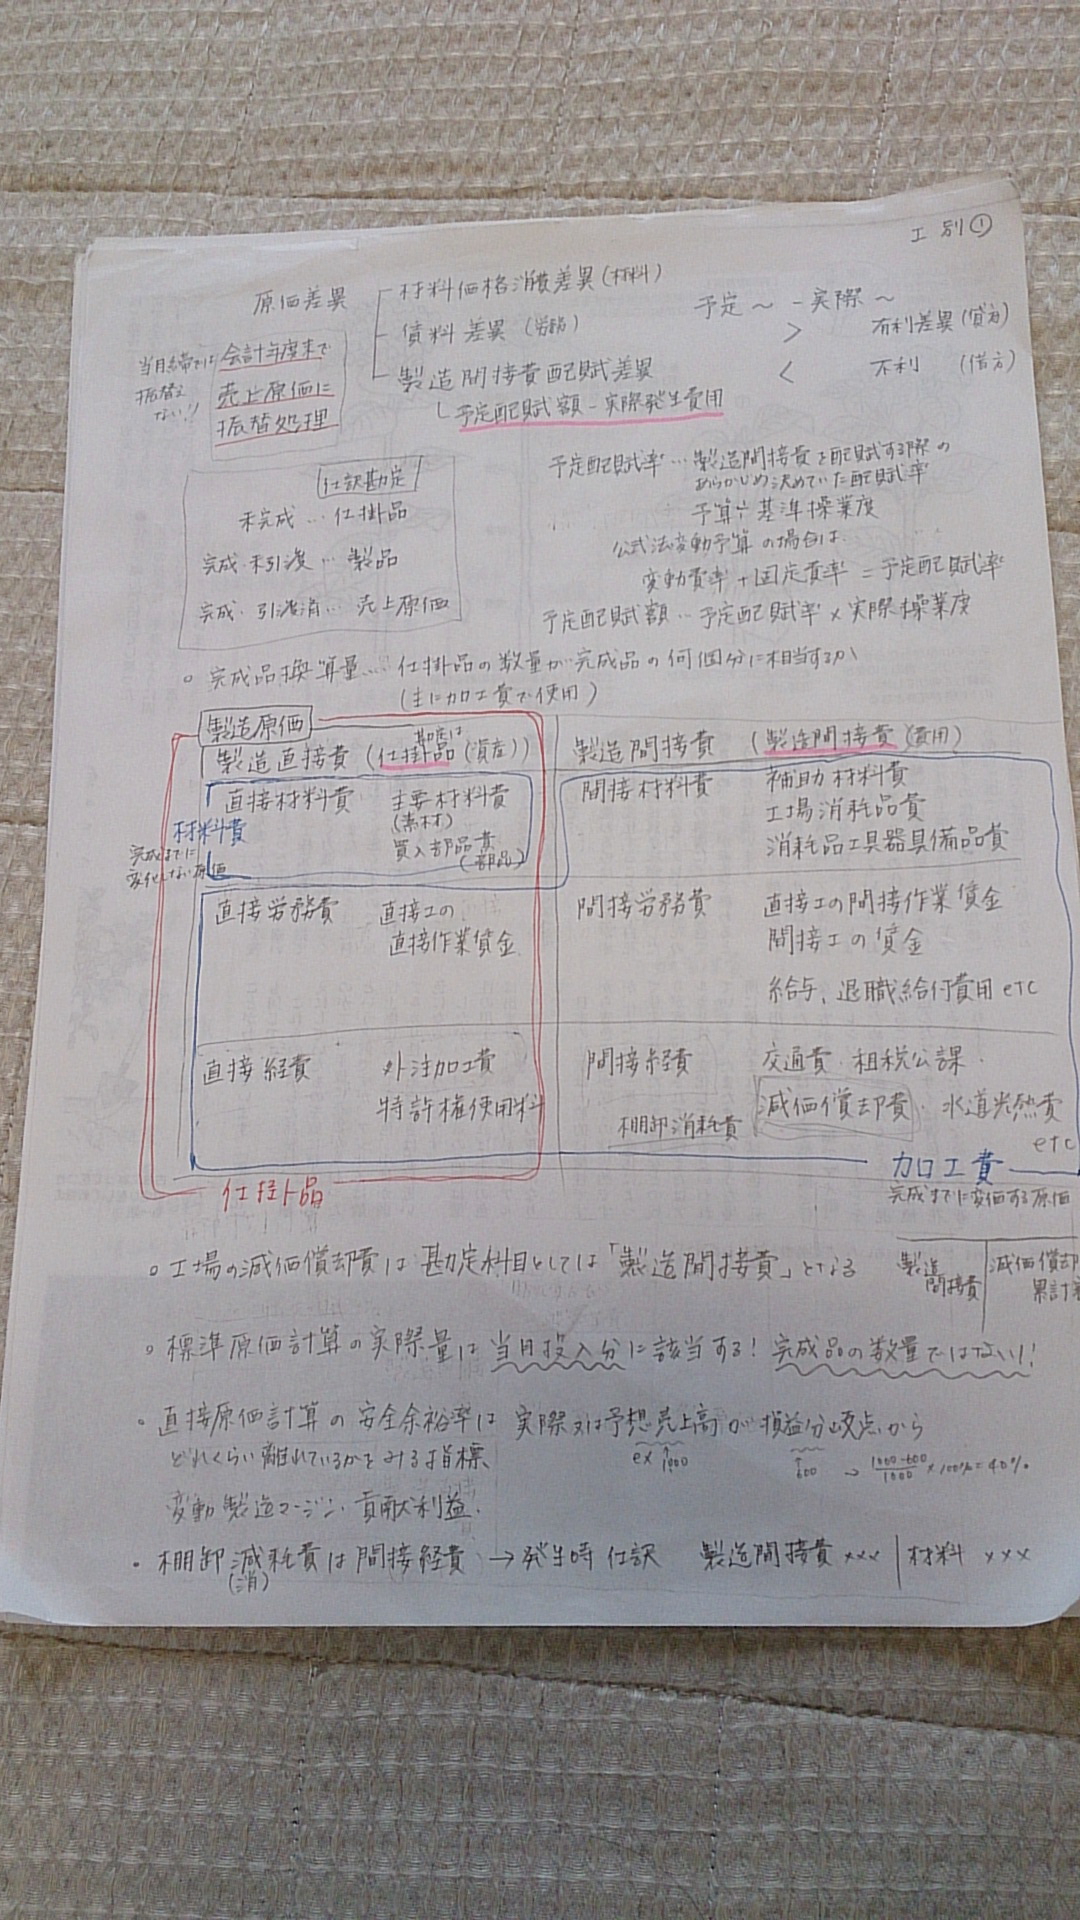 工 別①
原価差異
材料価格消費差異(材料)
賃料差異 (労務)
製造間接費配賦差異
└予定配賦額-実際発生費用
予定~ - 実際~
> 有利差異(貸方)
< 不利 (借方)
当月締では
振替え
ない!!
会計年度末で
売上原価に
振替処理
仕訳勘定
未完成…仕掛品
完成・未引渡…製品
完成・引渡済…売上原価
予定配賦率…製造間接費を配賦する際の
あらかじめ決めていた配賦率
予算÷基準操業度
公式法変動予算の場合は、
変動費率+固定費率=予定配賦率
予定配賦額…予定配賦率×実際操業度
○ 完成品換算量……仕掛品の数量が完成品の何個分に相当するか
(主に加工費で使用)
製造原価
勘定は
製造直接費(仕掛品(資産))
製造間接費 (製造間接費(費用)
直接材料費 主要材料費
(素材)
買入部品費
(部品)
材料費
完成までに
変化しない原価
間接材料費 補助材料費
工場消耗品費
消耗品工具器具備品費
直接労務費 直接工の
直接作業賃金
間接労務費 直接工の間接作業賃金
間接工の賃金
給与、退職給付費用etc
直接経費 外注加工費
特許権使用料
間接経費 交通費・租税公課・
棚卸消耗費 減価償却費・水道光熱費
etc
仕掛品
加工費
完成までに変価する原価
○工場の減価償却費は勘定科目としては「製造間接費」となる
製造
間接費
減価償却
累計
○標準原価計算の実際量は当月投入分に該当する!完成品の数量ではない!
・直接原価計算の安全余裕率は 実際又は予想売上高が損益分岐点から
どれくらい離れているかをみる指標、
ex ↑1000
↑600 → 1000-600/1000×100%=40%
変動製造マージン・貢献利益.
・棚卸減耗費は間接経費 →発生時仕訳 製造間接費 ××× | 材料 ×××
(消)